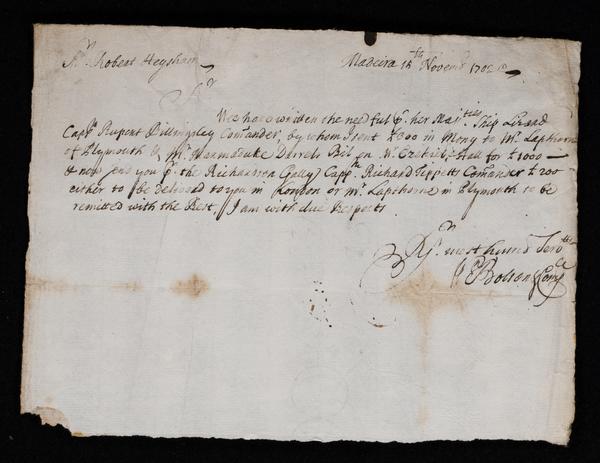 Mr. Robert Heysham Madeira 18th Novembr 1702
Sr
Wee have written the needful pr. her Majties Ship
Captn Rupert Billingsley Comander, by whom I sent £300 in Mony to Mr. Lapthorne
of Plymouth & Mr. Marmaduke Darels Bil on Mr. Ezekiel Hall for £1000
& now send you pr. the Richard Gally Captn. Richard Tippetts Comander £200
either to be delivered to you in London or Mr. Lapthorne in Plymouth to be
remitted with the Rest, I am with due Respects
Sr. most humb Servtts
Bolton & Compa